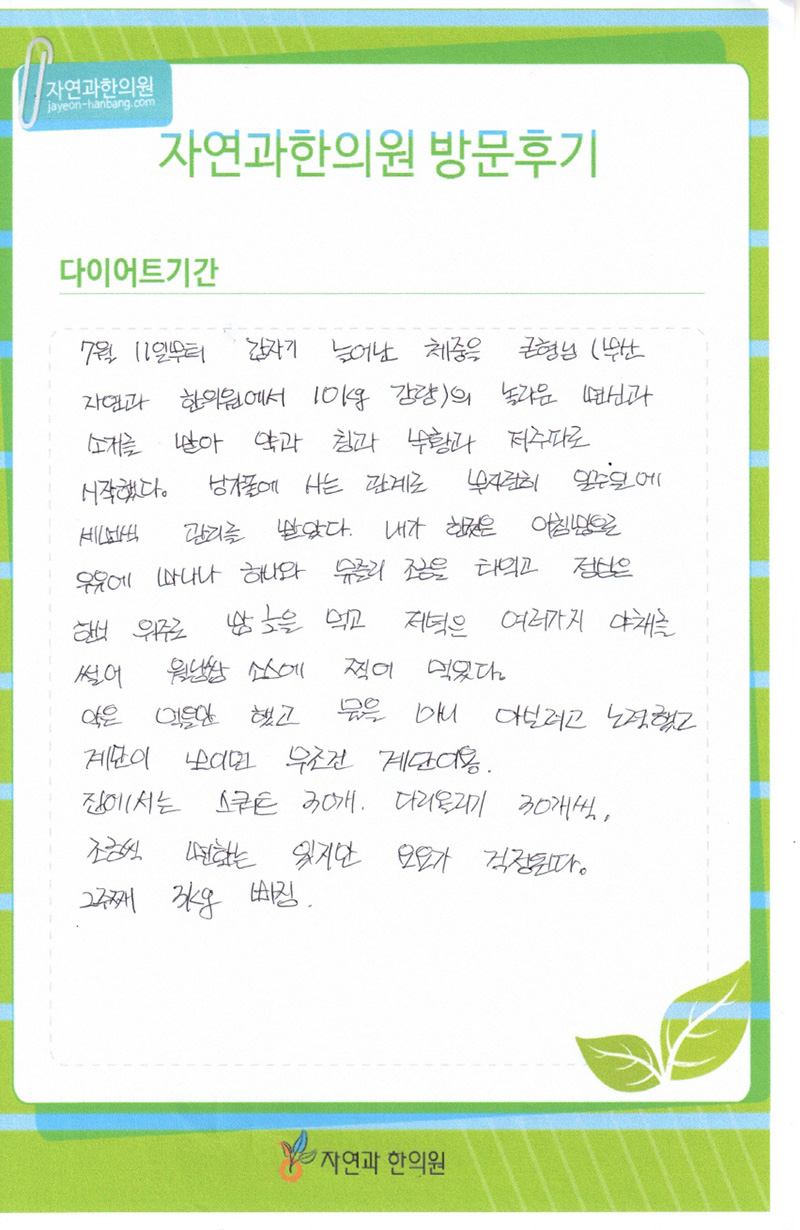 자연과한의원
jayeon-hanbang.com
자연과한의원 방문후기
다이어트기간
7월 11일부터 갑자기 늘어난 체중을 큰형님 (부산
자연과 한의원에서 10kg 감량)의 놀라운 변신과
소개를 받아 약과 침과 부황과 저주파로
시작했다. 남가좌에 사는 관계로 부지런히 일주일에
세번씩 관리를 받았다. 내가 한것은 아침밥으로
우유에 바나나 하나와 뮤즐리 조금을 타먹고 점심은
한식 위주로 밥 을 먹고 저녁은 여러가지 야채를
썰어 월남쌈 소스에 찍어 먹었다.
약은 먹을만 했고 물을 많이 마실려고 노력했고
계단이 보이면 무조건 계단이용.
집에서는 스쿼트 30개. 다리올리기 30개씩.
조금씩 변화는 있지만 요요가 걱정된다.
2주째 3kg 빠짐.
자연과 한의원